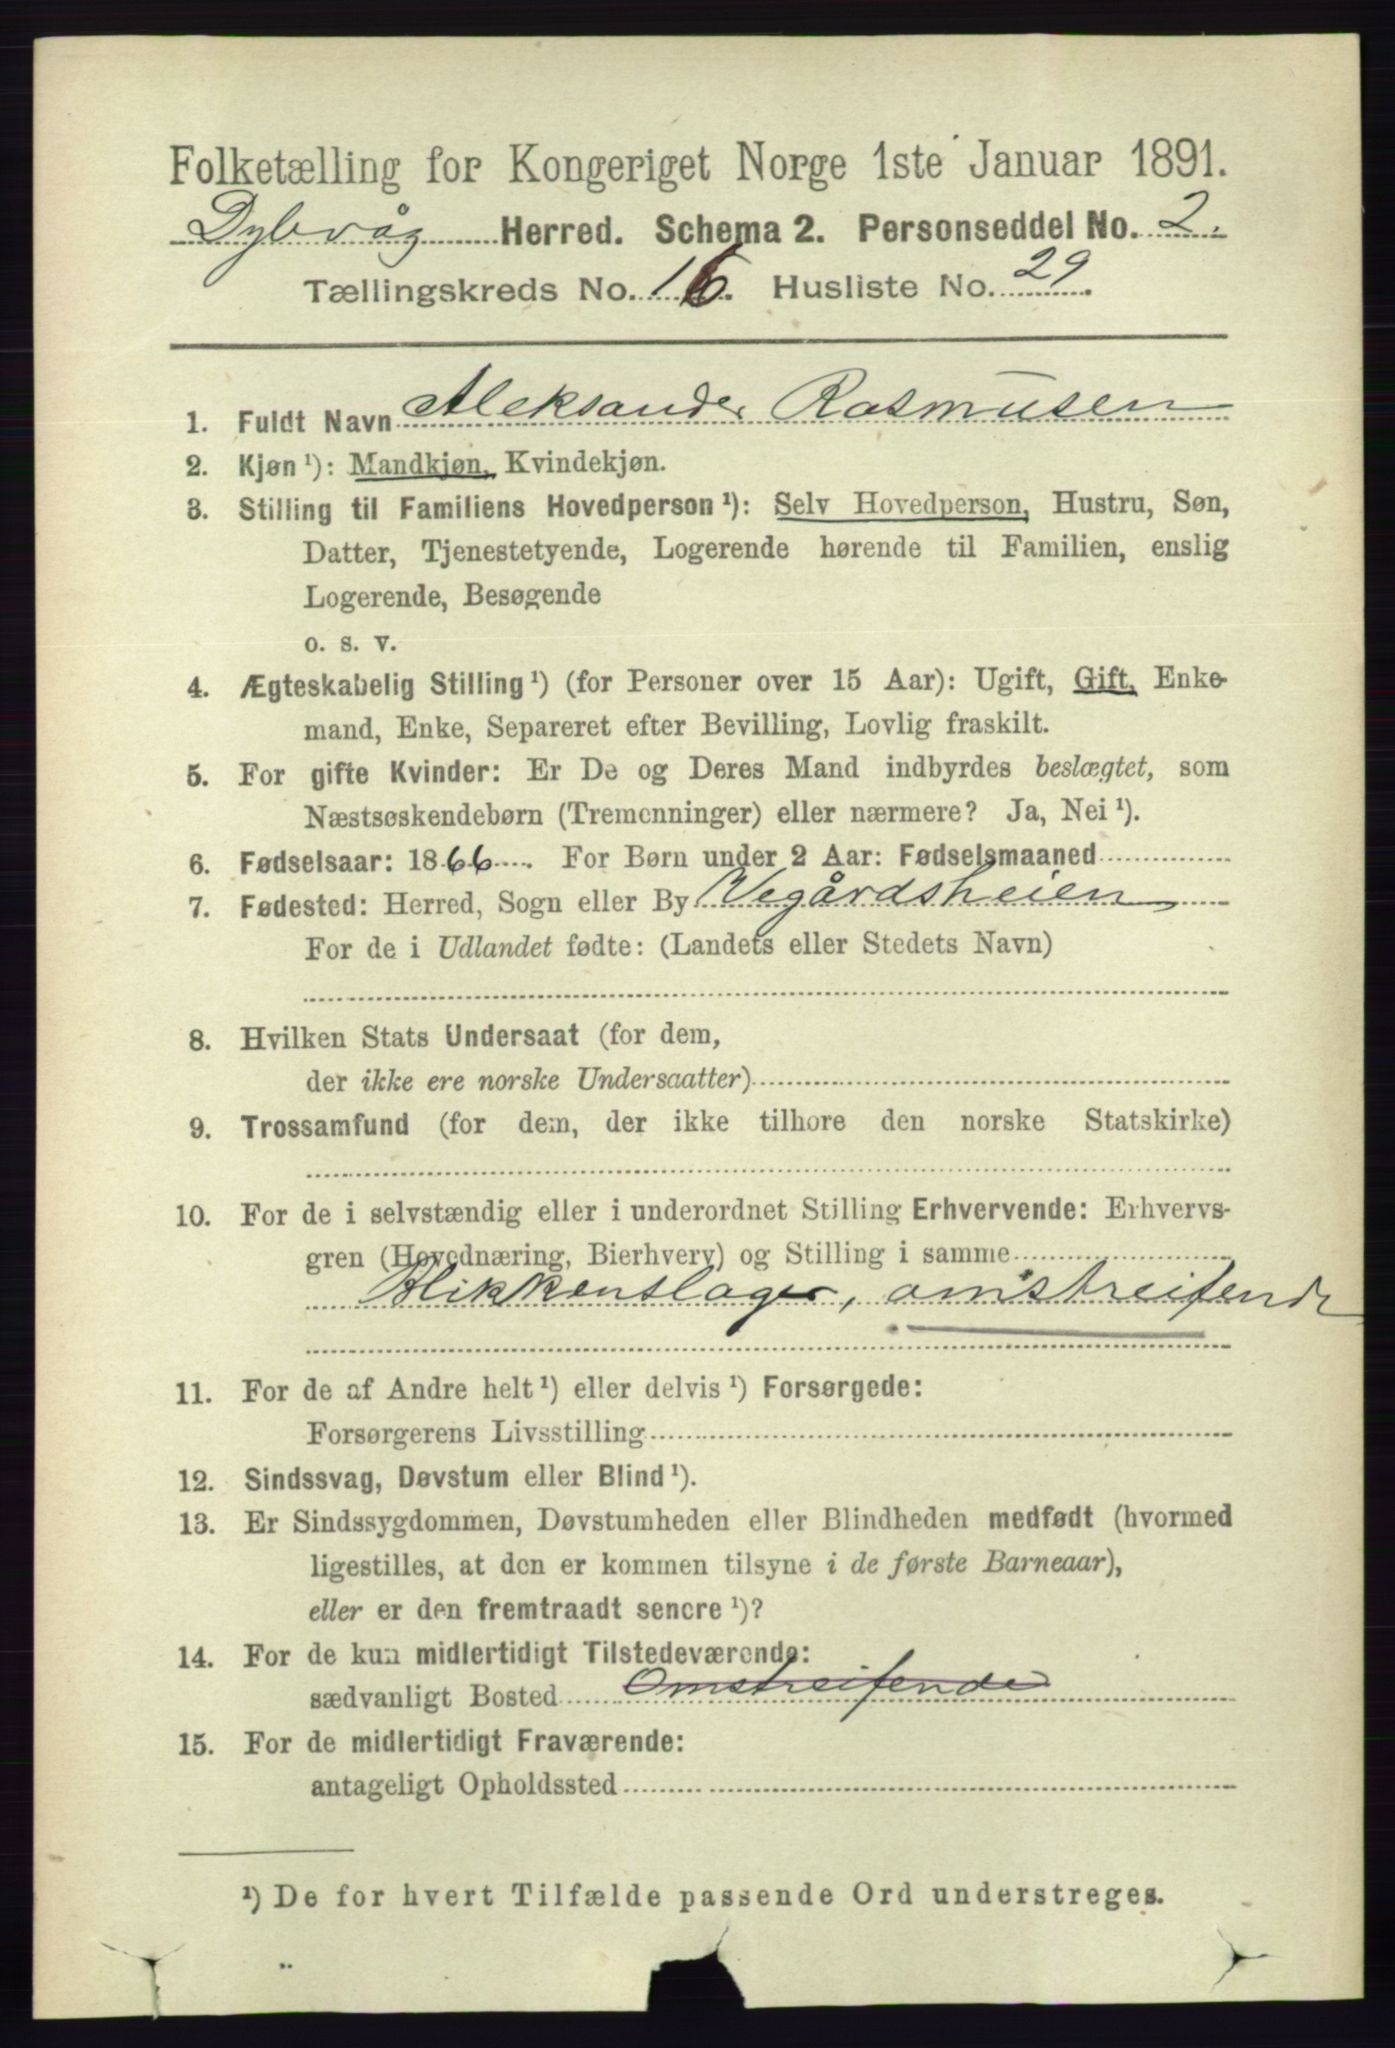 Folketælling for Kongeriget Norge 1ste Januar 1891.
Dybvåg Herred. Schema 2. Personseddel No. 2.
Tællingskreds No. 16. Husliste No. 29.
1. Fuldt Navn Aleksander Rasmusen
2. Kjøn ¹): Mandkjøn, Kvindekjøn.
3. Stilling til Familiens Hovedperson ¹): Selv Hovedperson, Hustru, Søn,
Datter, Tjenestetyende, Logerende hørende til Familien, enslig
Logerende, Besøgende
o. s. v.
4. Ægteskabelig Stilling ¹) (for Personer over 15 Aar): Ugift, Gift, Enke-
mand, Enke, Separeret efter Bevilling, Lovlig fraskilt.
5. For gifte Kvinder: Er De og Deres Mand indbyrdes beslægtet, som
Næstsøskendebørn (Tremenninger) eller nærmere? Ja, Nei ¹).
6. Fødselsaar: 1866. For Børn under 2 Aar: Fødselsmaaned
7. Fødested: Herred, Sogn eller By Vegårdsheien
For de i Udlandet fødte: (Landets eller Stedets Navn)
8. Hvilken Stats Undersaat (for dem,
der ikke ere norske Undersaatter)
9. Trossamfund (for dem, der ikke tilhøre den norske Statskirke)
10. For de i selvstændig eller i underordnet Stilling Erhvervende: Erhvervs-
gren (Hovednæring, Bierhverv) og Stilling i samme
Blikkenslager, omstreifende
11. For de af Andre helt ¹) eller delvis ¹) Forsørgede:
Forsørgerens Livsstilling
12. Sindssvag, Døvstum eller Blind ¹).
13. Er Sindssygdommen, Døvstumheden eller Blindheden medfødt (hvormed
ligestilles, at den er kommen tilsyne i de første Barneaar),
eller er den fremtraadt senere ¹)?
14. For de kun midlertidigt Tilstedeværende:
sædvanligt Bosted Omstreifende
15. For de midlertidigt Fraværende:
antageligt Opholdssted
¹) De for hvert Tilfælde passende Ord understreges.